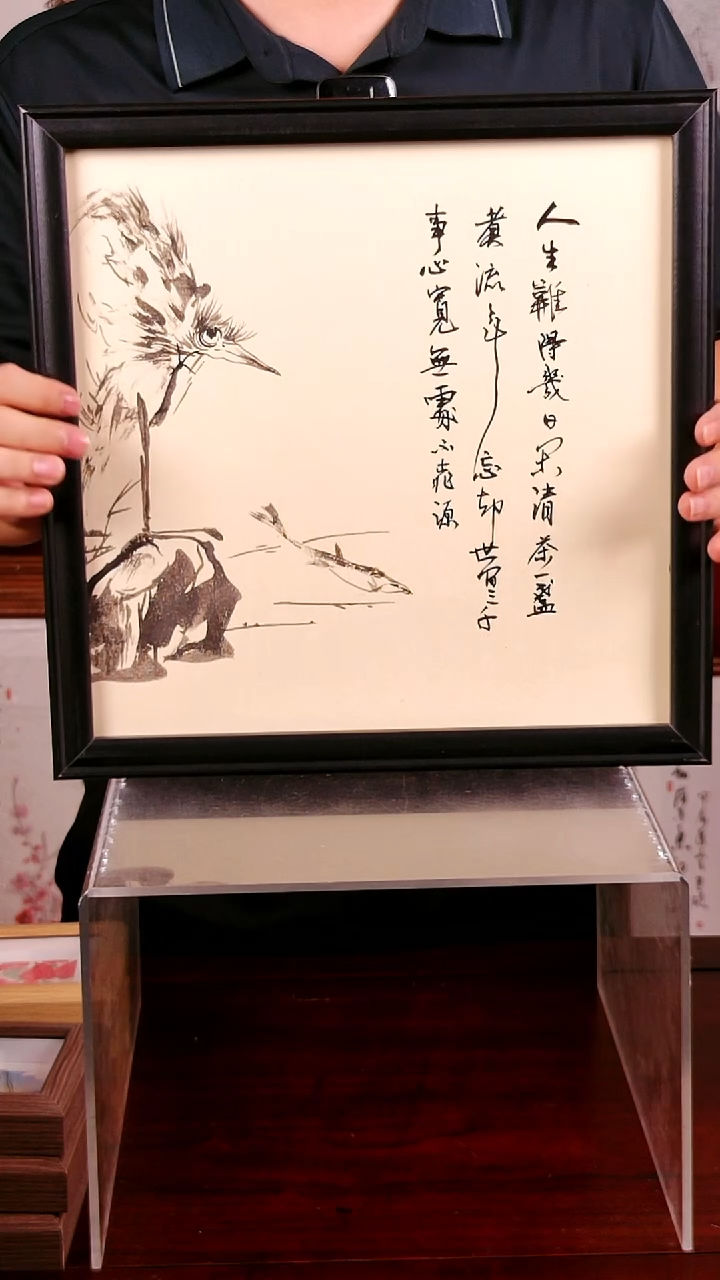 人生難得幾日閑清茶一盞
煮流年忘却世間三千
事心寬無處不桃源